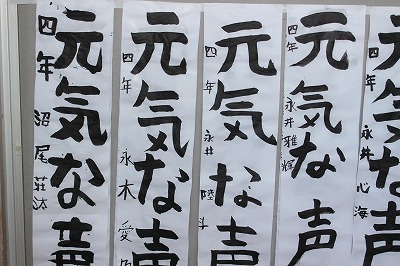 元気な声
四年 永井 心海
元気な声
四年 永井雅輝
元気な声
四年 永井 陸斗
元気な声
四年 永木 愛
元気な声
四年 沼尾 荘汰